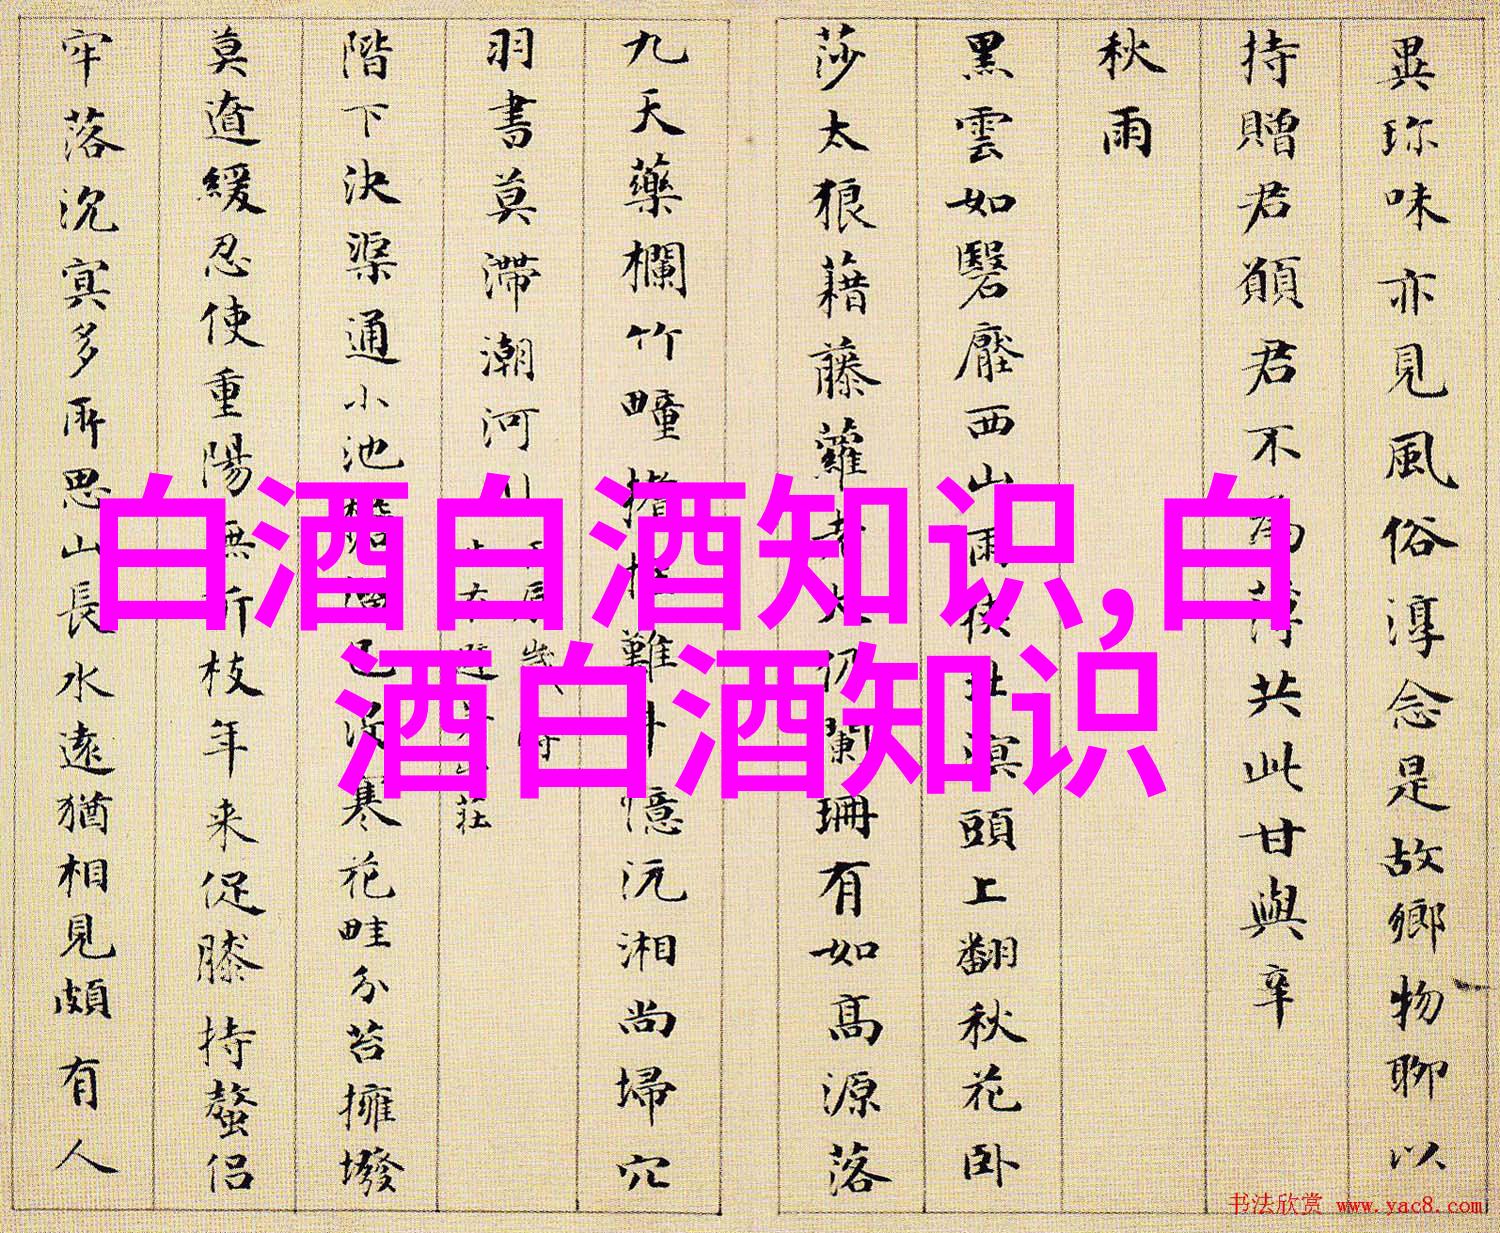 異珎味亦見風俗淳念是故鄉物聊以
持贈君願君不為薄共此甘與辛
秋雨
黑雲如翳壓西山雨後
頭上翻秋花卧
莎太狼藉藤蘿
珊有如高源落
九天藥欄竹疃
難
憶沅湘尚埽穴
羽書莫滯潮河
莊
階下決渠通小池
寒花畦分苔擁墢
莫遒緩忍使重陽無折枝年来促膝持螯侣
牢落沉冥多所思山長水遠猶相見頗有人
白酒白酒知识,白
酒白酒知识
书法欣赏 www.yac8.com